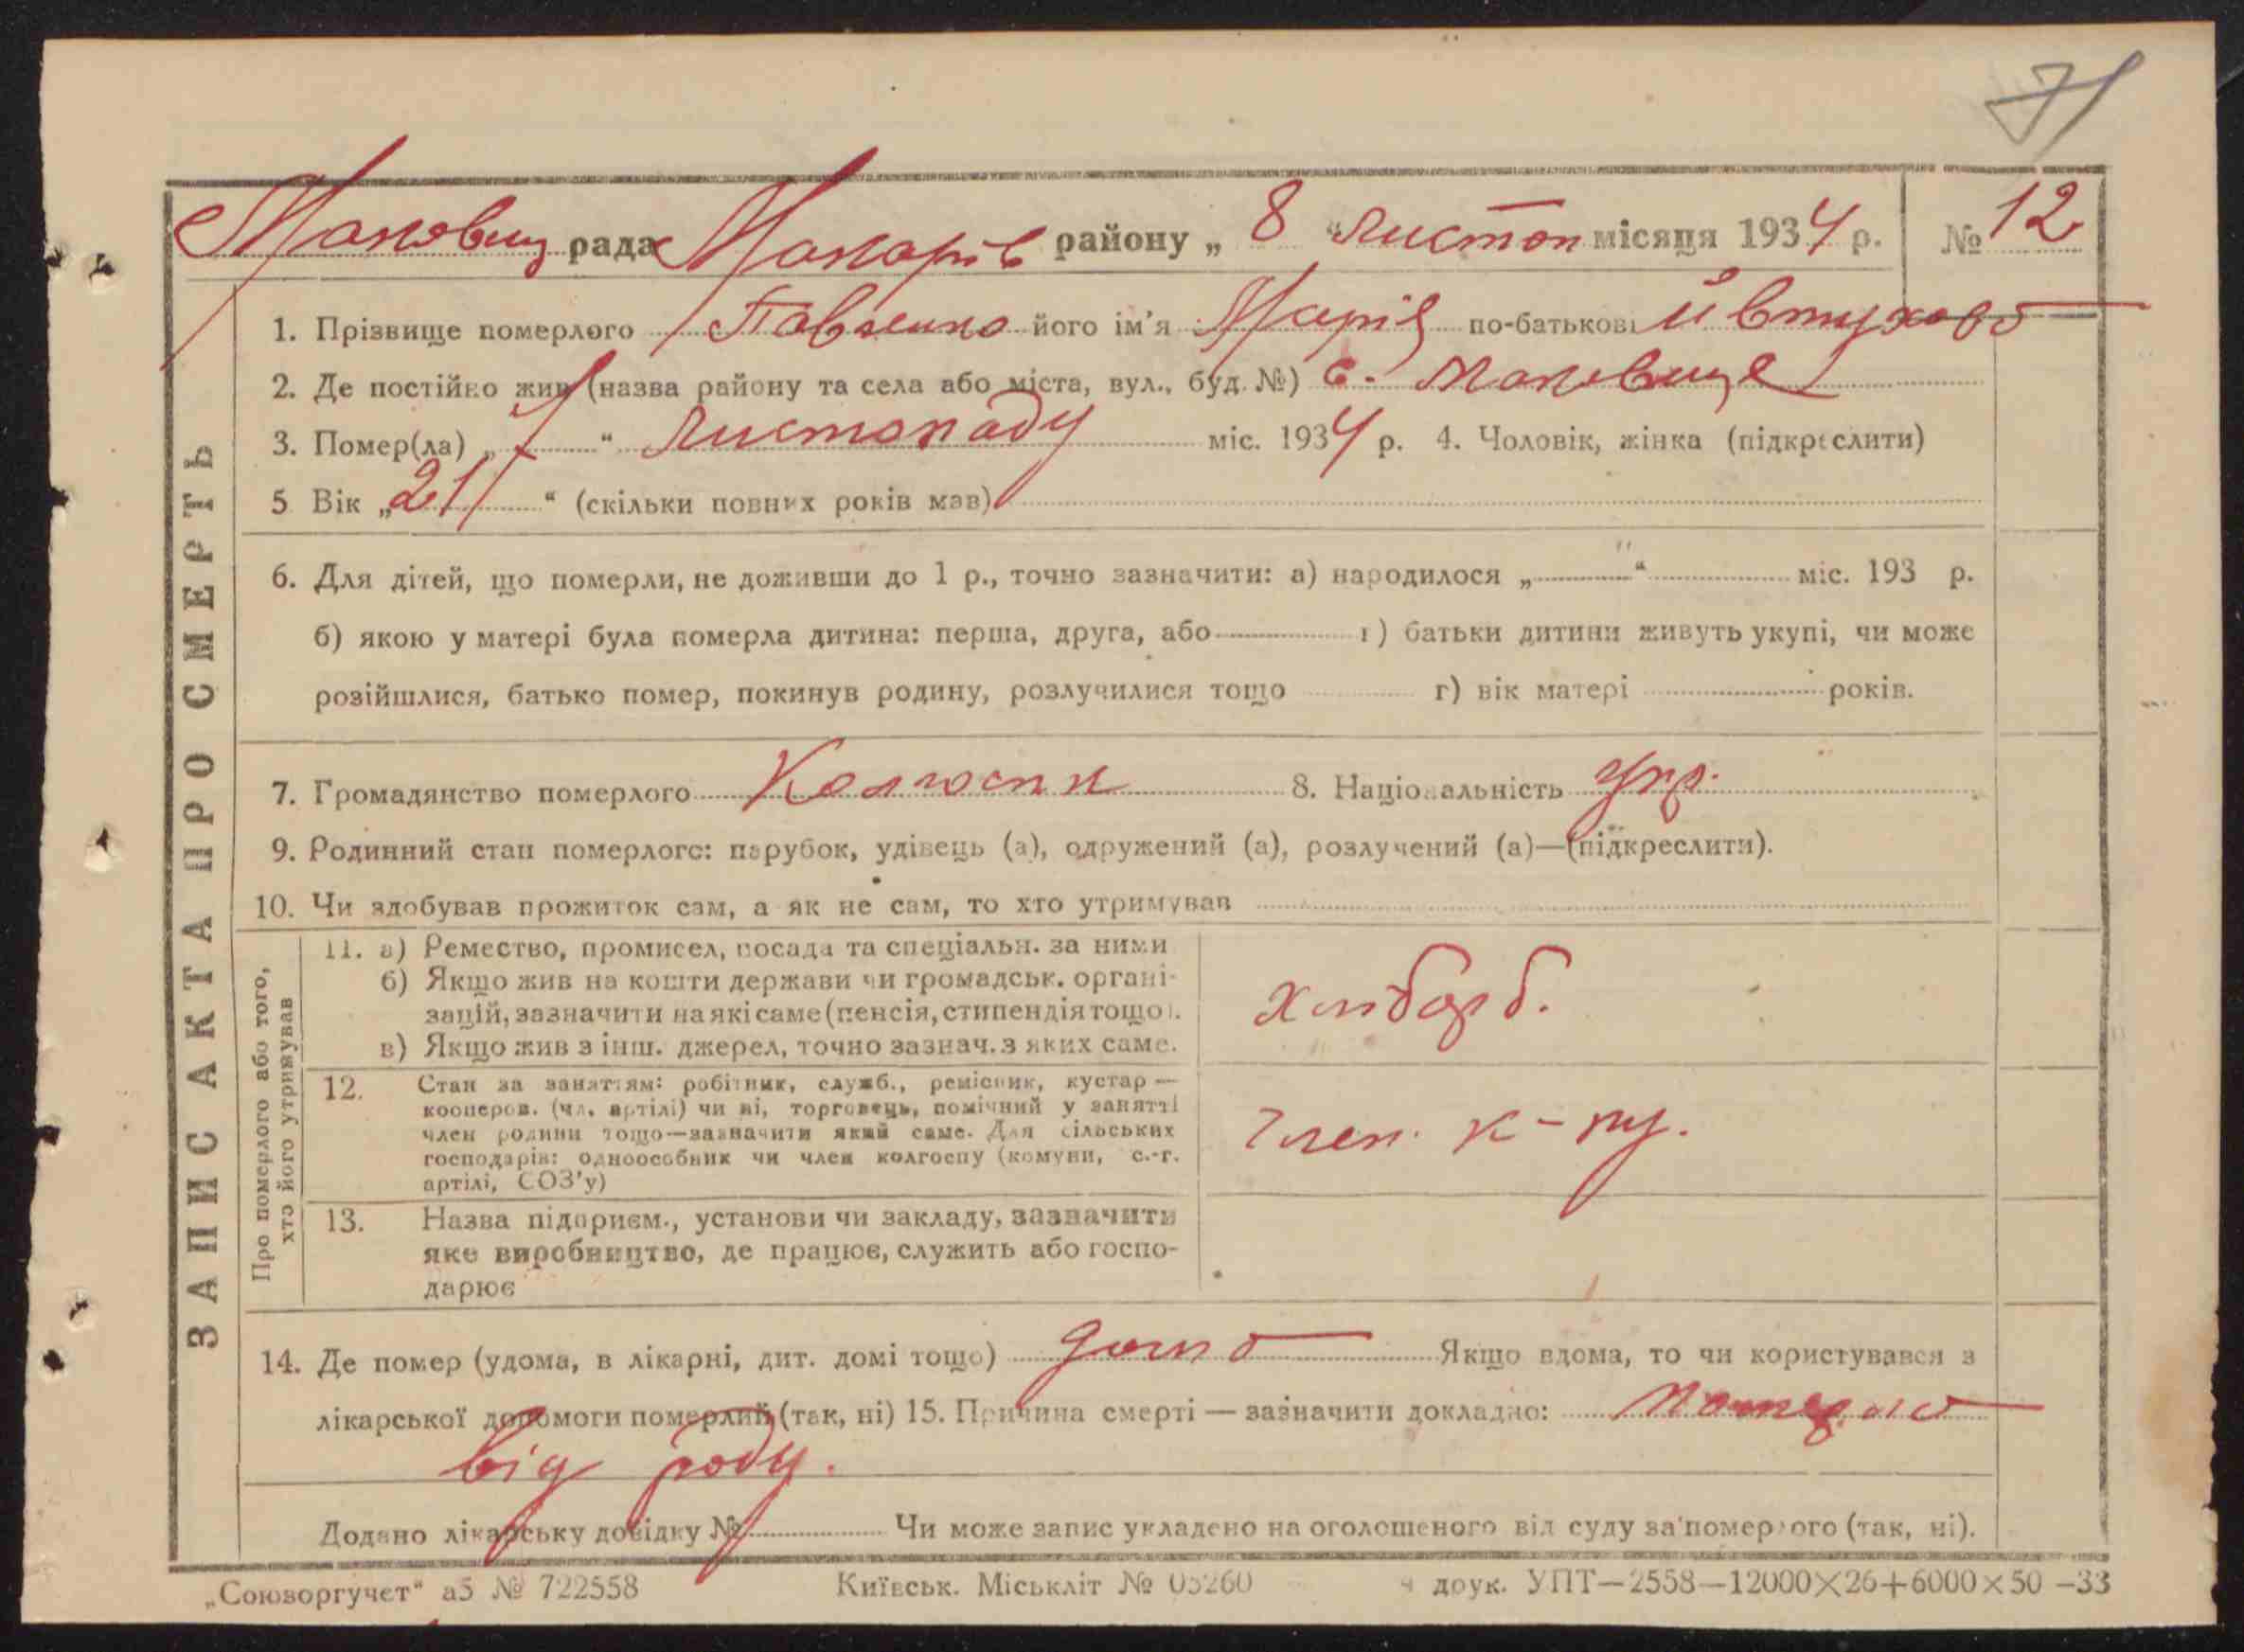 71
Маковищ рада Макарів району „ 8 “ листоп місяця 1934 р. № 12
1. Прізвище померлого Павленко його ім’я Марія по-батькові Йвтухова
2. Де постійно жив (назва району та села або міста, вул., буд. №) с. Маковище
3. Помер(ла) „ 7 “ листопаду міс. 1934 р. 4. Чоловік, жінка (підкреслити)
5 Вік „ 21 “ (скільки повних років мав)
6. Для дітей, що померли, не доживши до 1 р., точно зазначити: а) народилося „ “ міс. 193 р.
б) якою у матері була померла дитина: перша, друга, або г) батьки дитини живуть укупі, чи може
розійшлися, батько помер, покинув родину, розлучилися тощо г) вік матері років.
7. Громадянство померлого Колгосп 8. Національність Укр.
9. Родинний стан померлого: парубок, удівець (а), одружений (а), розлучений (а)—(підкреслити).
10. Чи здобував прожиток сам, а як не сам, то хто утримував
ЗАПИС АКТА ПРО СМЕРТЬ
Про померлого або того,
хто його утримував
11. а) Ремество, промисел, посада та спеціальн. за ними
б) Якщо жив на кошти держави чи громадськ. органі-
зацій, зазначити на які саме (пенсія, стипендія тощо).
в) Якщо жив з інш. джерел, точно зазнач. з яких саме.
хлібороб.
12. Стан за заняттям: робітник, служб., ремісник, кустар —
кооперов. (чл. артілі) чи ні, торговець, помічний у занятті
член родини тощо—зазначити який саме. Для сільських
господарів: одноособник чи член колгоспу (комуни, с.-г.
артілі, СОЗ'у)
Член. к-пу.
13. Назва підприєм., установи чи закладу, зазначити
яке виробництво, де працює, служить або госпо-
дарює
14. Де помер (удома, в лікарні, дит. домі тощо) дома Якщо вдома, то чи користувався з
лікарської допомоги померлий (так, ні) 15. Причина смерті — зазначити докладно: померла
від роду.
Додано лікарську довідку № Чи може запис укладено на оголошеного від суду за померлого (так, ні).
„Союзоргучет“ а5 № 722558 Київськ. Міськліт № 05260 ч доук. УПТ—2558—12000×26+6000×50 —33